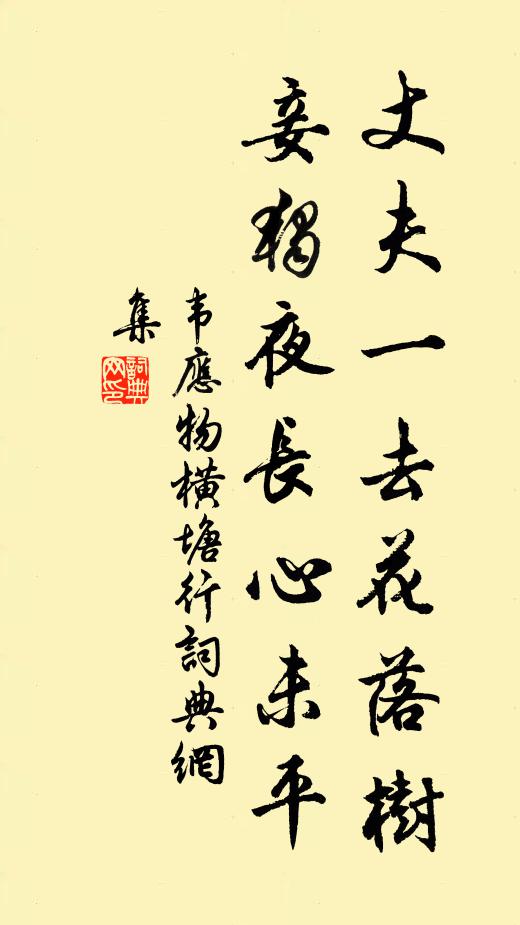 丈夫一去花落樹
妾獨夜長心未平
韦應物橫塘行詞典網
集
詞典
网印